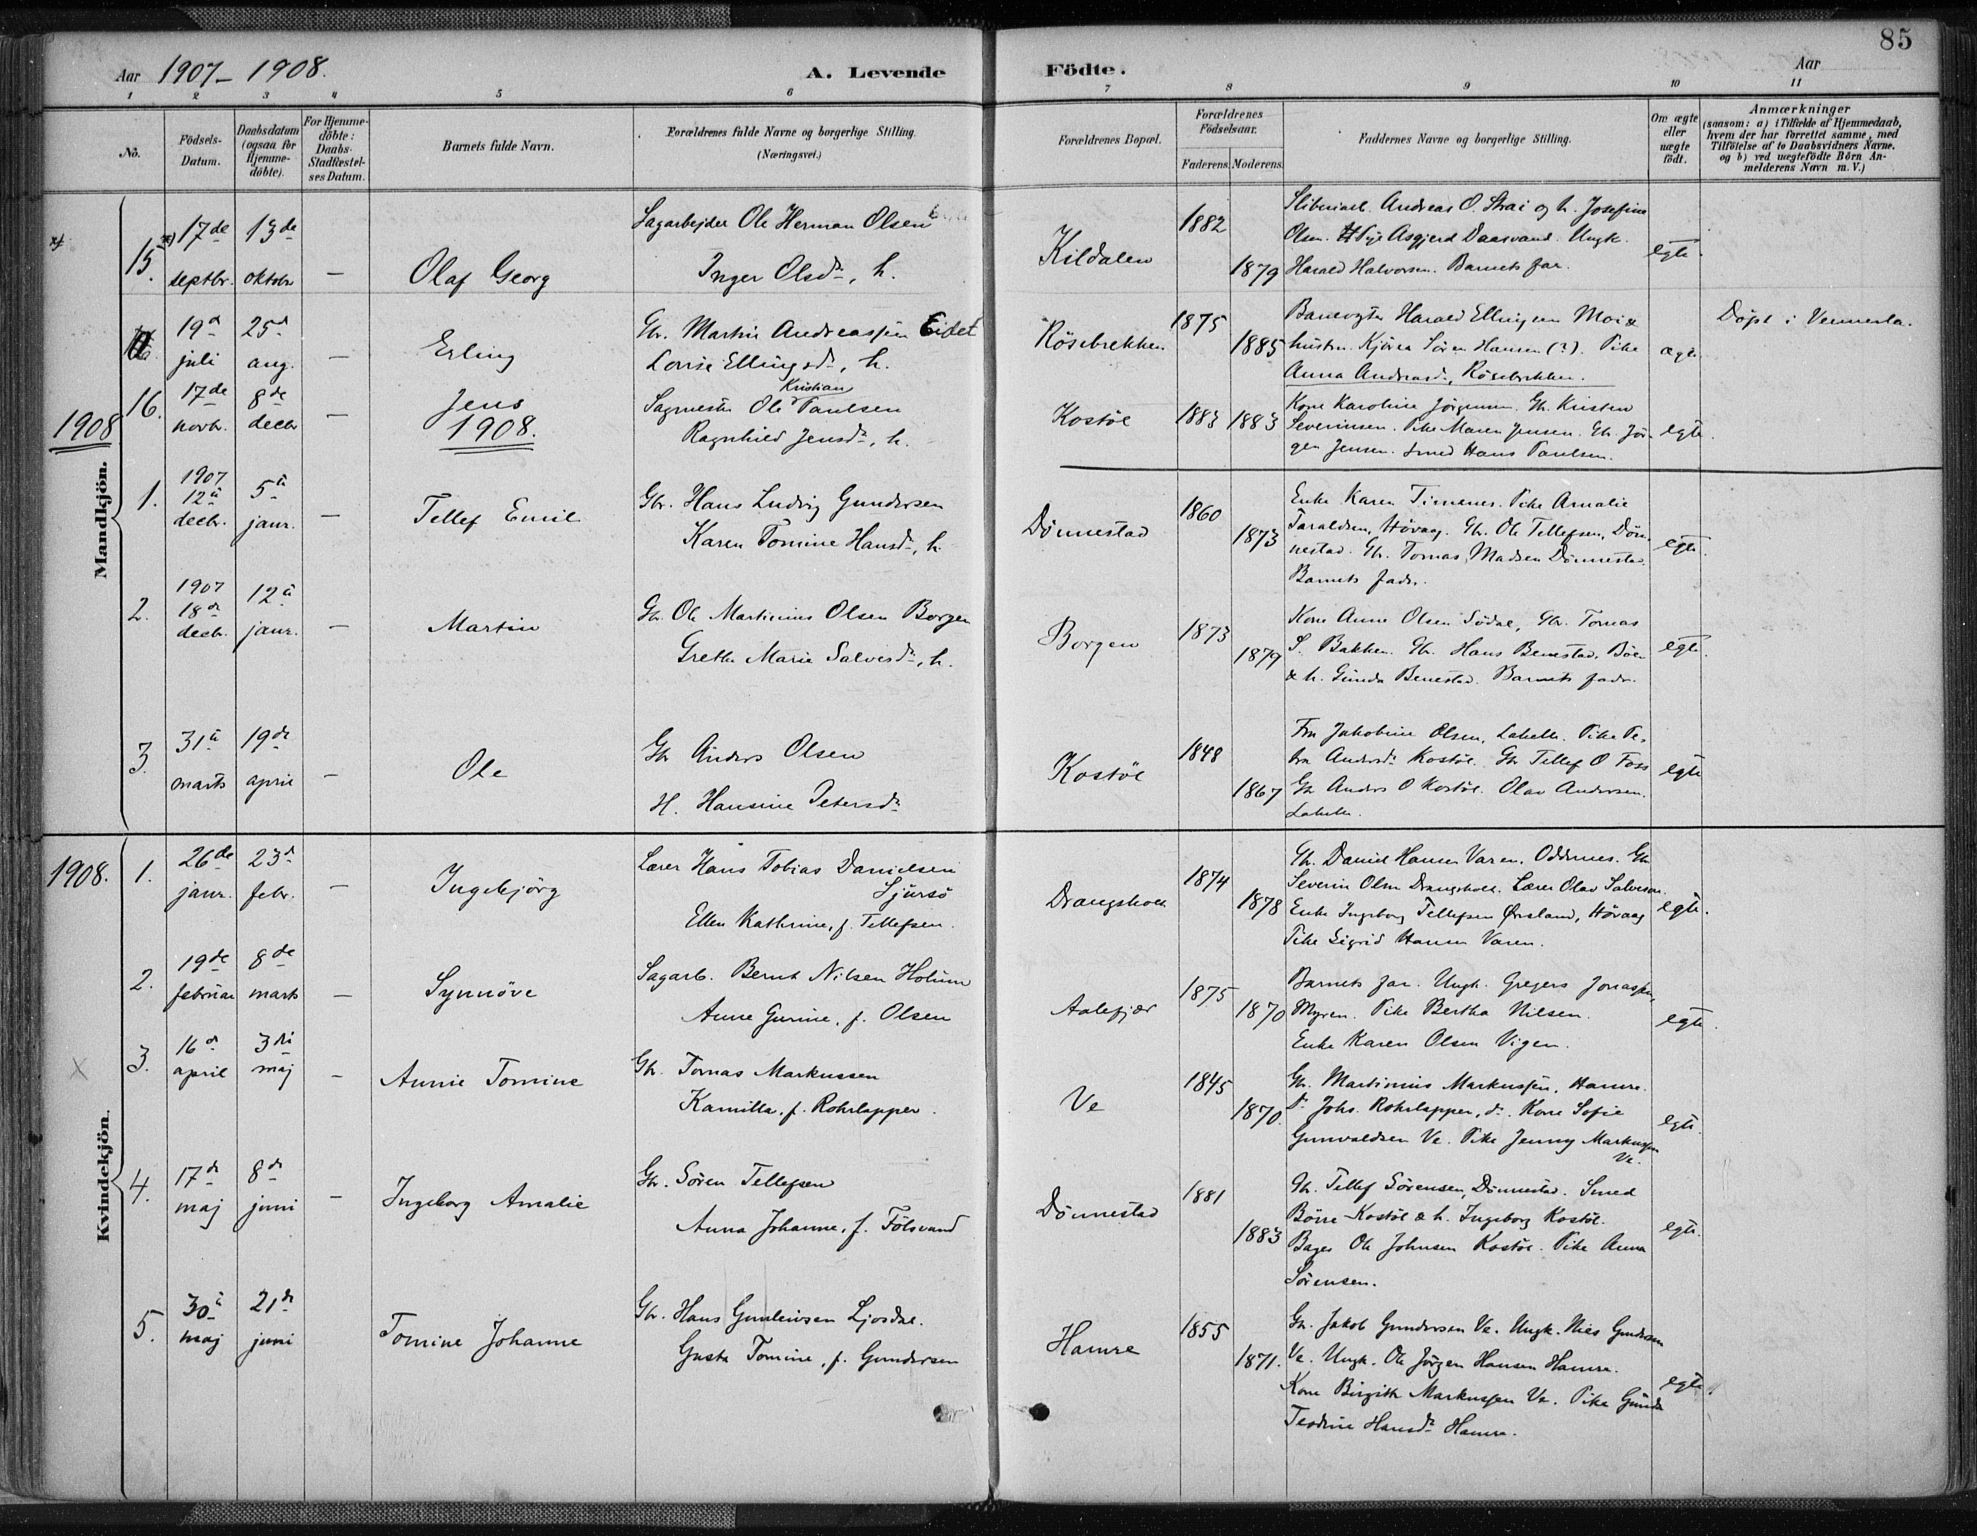 85
Aar 1907-1908.
A. Levende Födte.
Aar
1 2 3 4 5 6 7 8 9 10 11
No.
Födsels-Datum.
Daabsdatum (ogsaa for Hjemme-döbte).
For Hjemme-döbte: Daabs-Stadfæstel-ses Datum.
Barnets fulde Navn.
Forældrenes fulde Navne og borgerlige Stilling. (Næringsvei.)
Forældrenes Bopæl.
Forældrenes Födselsaar.
Faderens. Moderens.
Faddernes Navne og borgerlige Stilling.
Om ægte eller uægte født.
Anmærkninger
(saasom: a) i Tilfælde af Hjemmedaab, hvem der har forrettet samme, med Tilföielse af to Daabsvidners Navne. og b) ved uægtefödte Börn An-melderens Navn m. V.)
Mandkjön.
15. 17de septbr. 13de oktobr – Olaf Georg
Sagarbejder Ole Herman Olsen
Inger Olsd., h.
Kildalen 1882 1879
Andreas O. Strai og h. Josefine
Olsen. Pige Asgjerd Daasvand. Ungk.
Harald Halvorsen. Barnets far.
egte.
19d juli 25d aug. – Erling
Gbr. Martin Andreassen Eidet
Lovise Ellingsd., h.
Røsebrekken 1875 1885
Banevogter Harald Ellingsen Moi &
hustru. Kjören Sören Hansen (?). Pike
Anna Andreasd., Røsebrekken.
ægte
Döpt i Vennesla.
16. 17de novbr. 8de decbr – Jens
Sagmester Ole Kristian Paulsen
Ragnhild Jensd., h.
Kostöl 1883 1883
Kone Karoline Jörgensen. Gb. Kristen
Severinsen. Pike Maren Jensen. Gb. Jör-
gen Jensen. Smed Hans Paulsen.
egte.
1908 1908.
1. 1907 12te decbr. 5te janr. – Tellef Emil
Gbr. Hans Ludvig Gundersen
Karen Tomine Hansd., h.
Dönnestad 1860 1873
Enke Karen Timenes. Pike Amalie
Taraldsen, Hövaag. Gb. Ole Tellefsen, Dön-
nestad. Gb. Tomas Madsen Dönnestad.
Barnets fader.
egte.
2. 1907 18de decbr. 12te janr. – Martin
Gb. Ole Martinius Olsen Borgen
Grethe Marie Salvesd., h.
Borgen 1873 1879
Kone Anne Olsen Södal, Gb. Tomas
S. Bakken. Gb. Hans Benestad, Böen
& h. Gunda Benestad. Barnets fader.
egte.
3. 31te marts 19de april – Ole
Gb Anders Olsen
H. Hansine Petersd.
Kostöl 1848 1867
Fru Jakobine Olsen, Lahelle. Pike Pe-
tra Andersd. Kostöl. Gb Tellef O Foss
Gb Anders O Kostöl. Olav Andersen.
Lahelle.
egte
Kvindekjön.
1908.
1. 26de janr. 23d febr. – Ingebjörg
Lærer Hans Tobias Danielsen
Sjursö
Ellen Kathrine, f. Tellefsen.
Drangsholt 1874 1878
Gb. Daniel Hansen Varen. Oddernes. Gb
Severin Olsen Drangsholt. Lærer Olav Salvesen.
Enke Ingeborg Tellefsen Ørsland, Hövaag
Pike Sigrid Hansen Varen.
egte.
2. 19de februar 8de marts – Synnöve
Sagarb. Bernt Nilsen Holum
Anne Gurine, f. Olsen
Aalefjær 1875 1870
Barnets far. Ungk. Gregers Jonassen,
Myren. Pike Bertha Nilsen.
Enke Karen Olsen Vigen.
egte.
3. 16d april 3die maj – Annie Tomine
Gbr. Tomas Markussen
Kamilla, f. Rohrlapper.
Ve 1845 1870.
Gb. Martinius Markussen, Hamre.
Do. Johs. Rohrlapper, do. Kone Sofie
Gunvaldsen Ve. Pike Jenny Markussen
Ve.
egte.
4. 17d maj 8d juni – Ingeborg Amalie
Gbr. Sören Tellefsen
Anna Johanne, f. Fölsvand
Dönnestad 1881 1883
Gb. Tellef Sörensen, Dönnestad. Smed
Börre Kostöl & h. Ingeborg Kostöl.
Bager Ole Johnsen Kostöl. Pike Anna
Sörensen.
egte.
5. 30te maj 21de juni – Tomine Johanne
Gbr. Hans Gunleivsen Ljosdal.
Gusta Tomine, f. Gundersen
Hamre 1855 1871.
Gb. Jakob Gundersen Ve. Ungk. Niels Gundersen
Ve. Ungk. Ole Jörgen Hansen Hamre.
Kone Birgitte Markussen Ve. Pike Gunda
Teodine Hansd. Hamre.
egte.